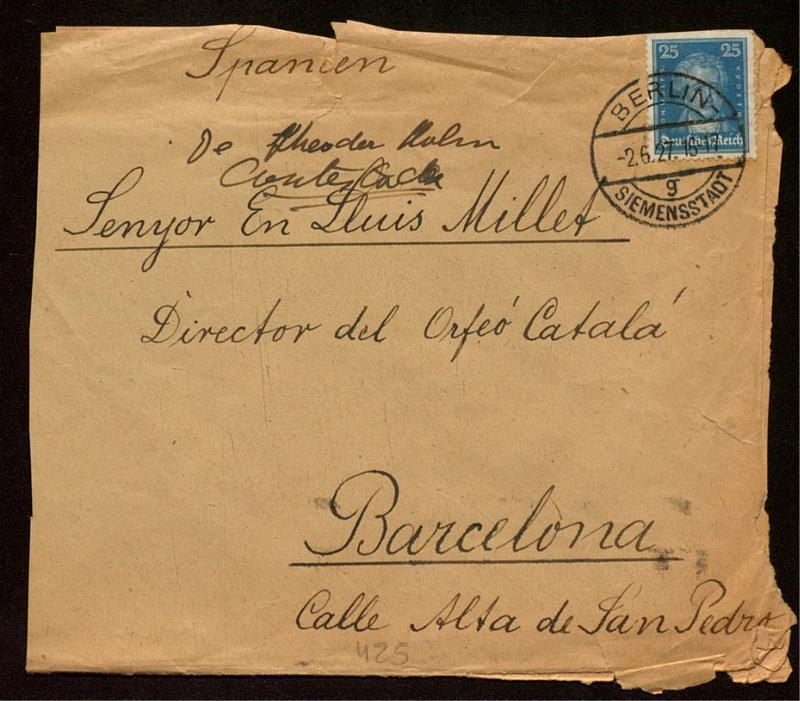 Spanien
25 25
Deutsches Reich
BERLIN-
-2.6.27. 16-17
g
SIEMENSSTADT
De Theodor
Contestada
Senyor En Lluis Millet
Director del Orfeó Catalá
Barcelona
Calle Alta de San Pedro
425